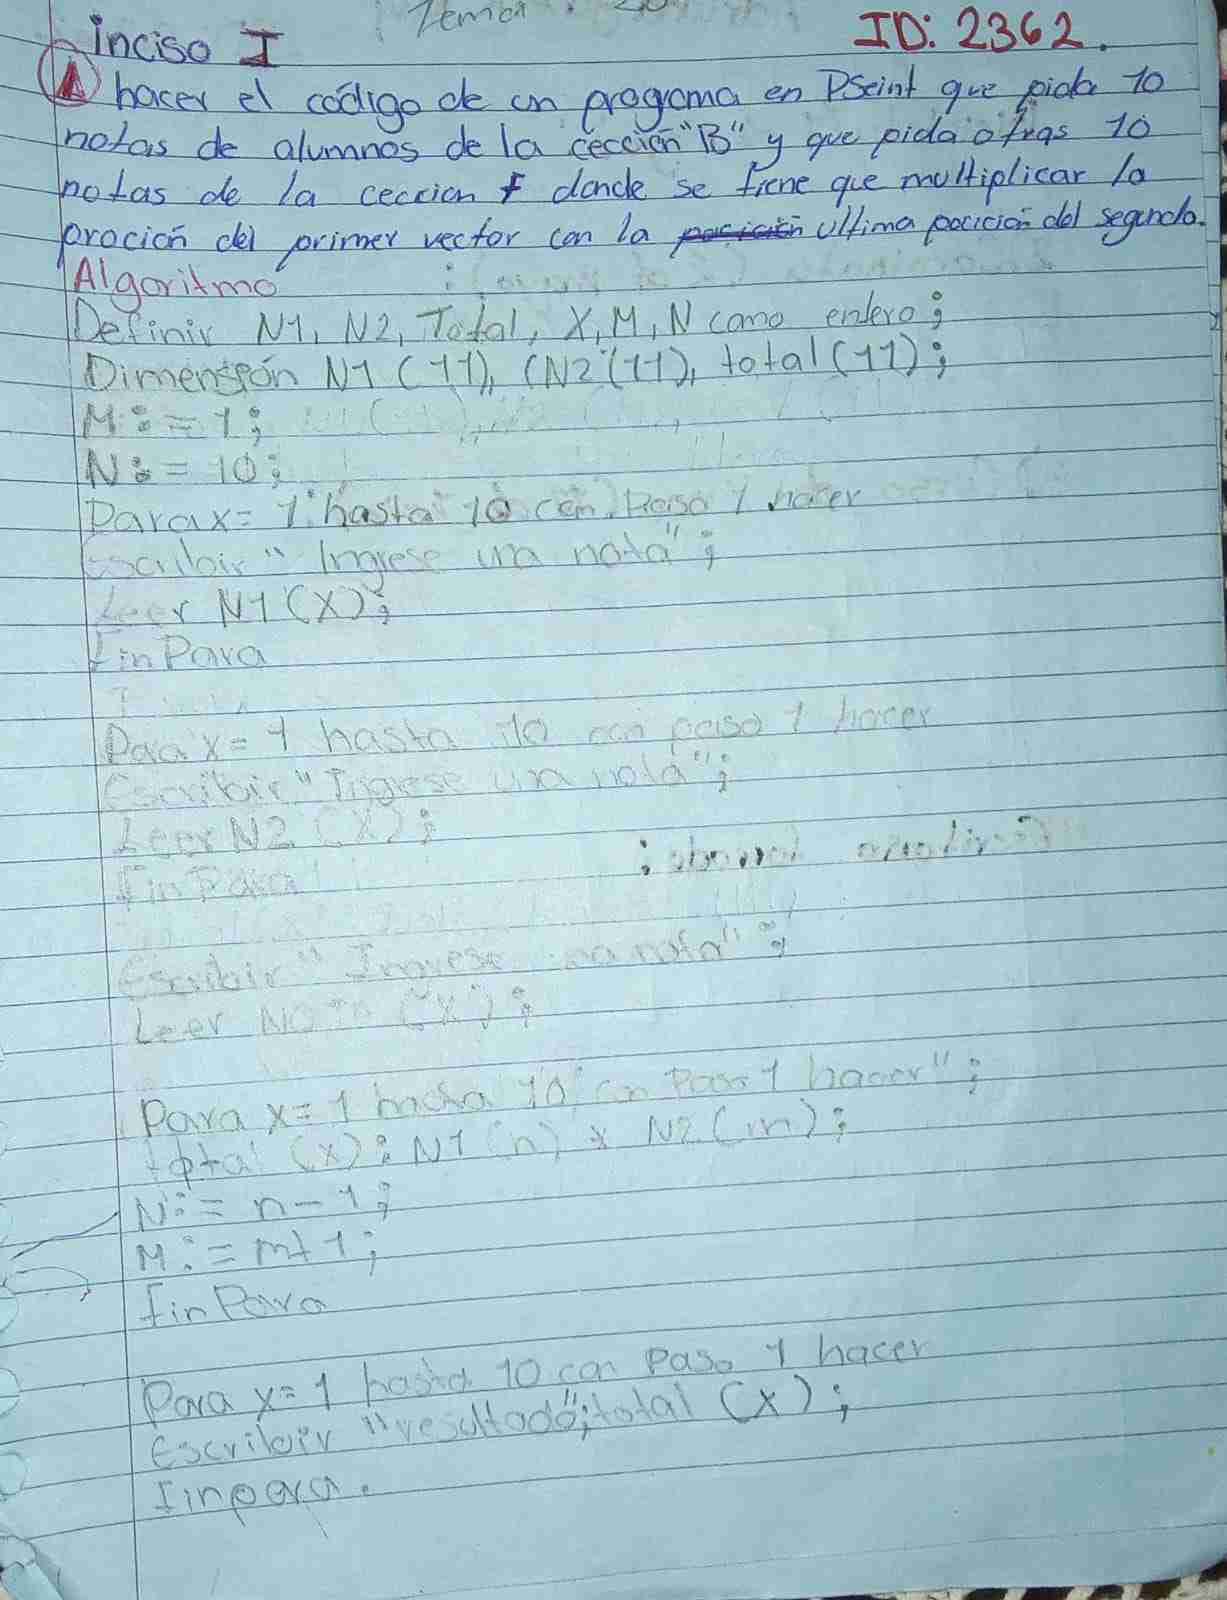 Tema:
inciso I
ID: 2362.
A hacer el código de un programa en PSeint que pida 10
notas de alumnos de la cección "B" y que pida otras 10
notas de la ceccion f donde se tiene que multiplicar la
poración del primer vector con la posición ultima pocición del segundo.
Algoritmo
Definir N1, N2, Total, X, M, N como entero;
Dimensión N1 (11), (N2 (11), total (11);
M:=1;
N:=10;
Para x=1 hasta 10 con Paso 1 hacer
Escribir "Ingrese una nota";
Leer N1 (X);
fin Para
Para x=1 hasta 10 con paso 1 hacer
Escribir "Ingrese una nota";
Leer N2 (X);
fin Para
Escribir "Ingrese una nota";
Leer (X);
Para x=1 hasta 10 con Paso 1 hacer";
total (x): N1 (n) * N2 (m);
N:= n-1;
M:= m+1;
fin Para
Para x=1 hasta 10 con Paso 1 hacer
Escribir "resultado"; total (X);
finpara.